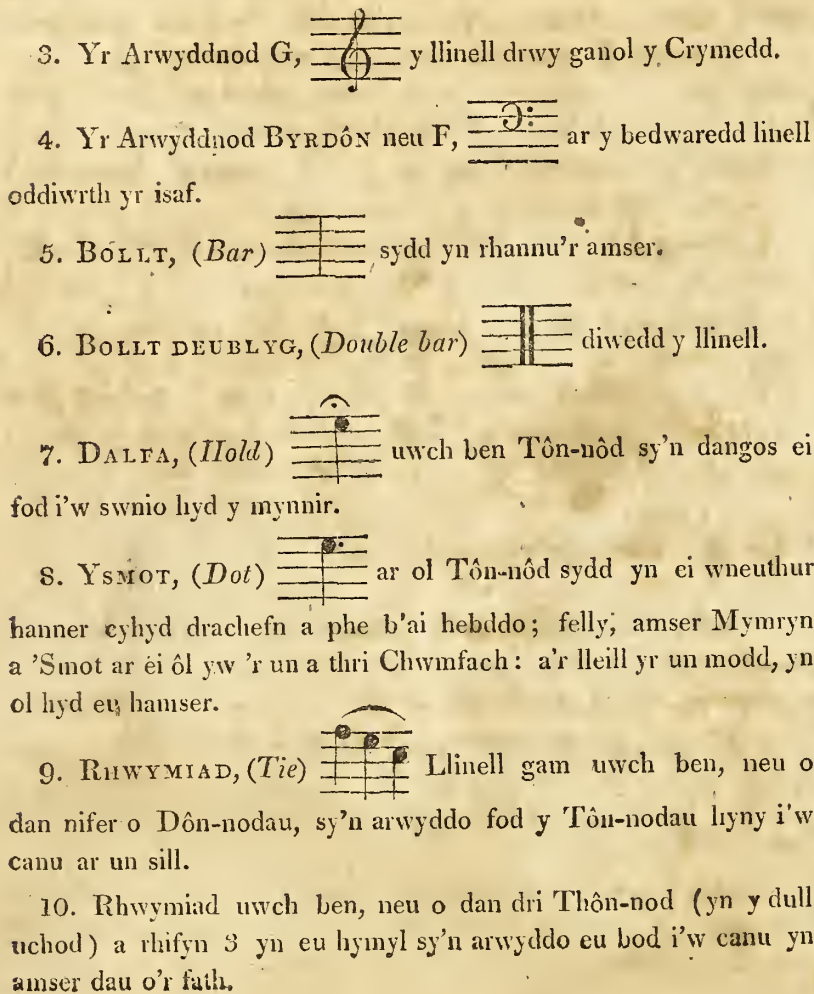 3. Yr Arwyddnod G, y llinell drwy ganol y Crymedd.
4. Yr Arwyddnod BYRDÔN neu F, ar y bedwaredd linell
oddiwrth yr isaf.
5. BOLLT, (Bar) sydd yn rhannu'r amser.
6. BOLLT DEUBLYG, (Double bar) diwedd y llinell.
7. DALFA, (Hold) uwch ben Tôn-nôd sy'n dangos ei
fod i'w swnio hyd y mynnir.
8. YSMOT, (Dot) ar ol Tôn-nôd sydd yn ei wneuthur
hanner cyhyd drachefn a phe b'ai hebddo; felly, amser Mymryn
a 'Smot ar ei ôl yw 'r un a thri Chwmfach: a'r lleill yr un modd, yn
ol hyd eu hamser.
9. RHWYMIAD, (Tie) Llinell gam uwch ben, neu o
dan nifer o Dôn-nodau, sy'n arwyddo fod y Tôn-nodau hyny i'w
canu ar un sill.
10. Rhwymiad uwch ben, neu o dan dri Thôn-nod (yn y dull
uchod) a rhifyn 3 yn eu hymyl sy'n arwyddo eu bod i'w canu yn
amser dau o'r fath.